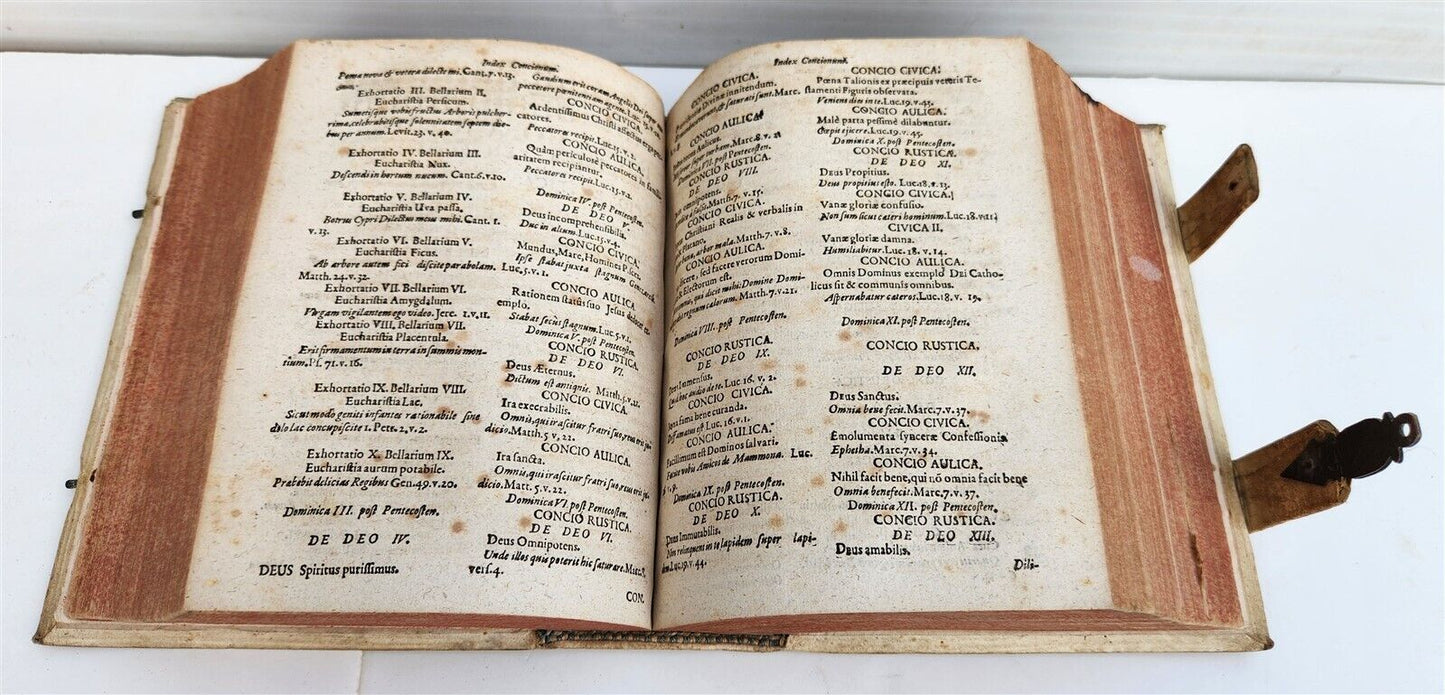 Index Concionum.
Poma nova & vetera dilecte mi. Cant. 7. v. 13.
Exhortatio III. Bellarium II.
Eucharistia Persicum.
Sumetisque vobis fructus Arboris pulcher-
rimæ, celebrabitisque solennitatem septem die-
bus per annum. Levit. 23. v. 40.
Exhortatio IV. Bellarium III.
Eucharistia Nux.
Descendi in hortum nucum. Cant. 6. v. 10.
Exhortatio V. Bellarium IV.
Eucharistia Uva passa.
Botrus Cypri Dilectus meus mihi. Cant. 1.
v. 13.
Exhortatio VI. Bellarium V.
Eucharistia Ficus.
Ab arbore autem fici discite parabolam.
Matth. 24. v. 32.
Exhortatio VII. Bellarium VI.
Eucharistia Amygdalum.
Virgam vigilantem ego video. Jere. 1. v. 11.
Exhortatio VIII. Bellarium VII.
Eucharistia Placentula.
Erit firmamentum in terra in summis mon-
tium. Ps. 71. v. 16.
Exhortatio IX. Bellarium VIII.
Eucharistia Lac.
Sicut modo geniti infantes rationabile sine
dilo lac concupiscite 1. Petr. 2. v. 2.
Exhortatio X. Bellarium IX.
Eucharistia aurum potabile.
Præbebit delicias Regibus Gen. 49. v. 20.
Dominica III. post Pentecosten.
DE DEO IV.
DEUS Spiritus purissimus.
Gaudium erit coram Angelis Dei super
peccatore pœnitentiam agente. Luc.
CONCIO CIVICA.
Ardentissimus Christi affectus erga pec-
catores.
Peccatores recipit. Luc. 15. v. 2.
CONCIO AULICA.
Quàm periculosè peccatores in famili-
aritatem recipiantur.
Peccatores recipit. Luc. 15. v. 2.
Dominica IV. post Pentecosten.
DE DEO V.
Deus incomprehensibilis.
Duc in altum. Luc. 5. v. 4.
CONCIO CIVICA.
Mundus, Mare, Homines Pisces.
Ipse stabat juxta stagnum Genezareth.
Luc. 5. v. 1.
CONCIO AULICA.
Rationem status suo Jesus docet ex-
emplo.
Stabat secùs stagnum. Luc. 5. v. 1.
Dominica V. post Pentecosten.
CONCIO RUSTICA.
DE DEO VI.
Deus Æternus.
Dictum est antiquis. Matth. 5. v. 21.
CONCIO CIVICA.
Ira execrabilis.
Omnis, qui irascitur fratri suo, reus erit ju-
dicio. Matth. 5 v. 22.
CONCIO AULICA.
Ira sancta.
Omnis, qui irascitur fratri suo, reus erit ju-
dicio. Matt. 5. v. 22.
Dominica VI. post Pentecosten.
CONCIO RUSTICA.
DE DEO VI.
Deus Omnipotens.
Unde illos quis poterit hic saturare. Marc. 8.
vers. 4.
CON.
Index Concionum.
CONCIO CIVICA.
Divinæ innitendum.
& saturati sunt. Marc.
CONCIO AULICA
Aulicus.
super turbam. Marc. 8. v. 2
Dominica VII. post Pentecosten.
CONCIO RUSTICA.
DE DEO VIII.
Matth. 7. v. 15.
CONCIO CIVICA.
Christiani Realis & verbalis in
Platano.
arbor mala. Matth. 7. v. 8.
CONCIO AULICA.
dicere, sed facere verorum Domi-
Electorum est.
qui dicit mihi: Domine Domi-
regnum cælorum. Matth. 7. v. 21.
Dominica VIII. post Pentecosten.
CONCIO RUSTICA.
DE DEO IX.
Deus Immensus.
Quid hoc audio de te. Luc 16. v. 2.
CONCIO CIVICA.
fama bene curanda.
Diffamatus est Luc. 16. v. 1.
CONCIO AULICA.
Facillimum est Dominos salvari.
Facite vobis Amicos de Mammona. Luc.
Dominica IX. post Pentecosten.
CONCIO RUSTICA.
DE DEO X.
Deus Immutabilis.
Non relinquent in te lapidem super lapi-
dem. Luc. 19. v. 44.
CONCIO CIVICA.
Pœna Talionis ex præcipuis veteris Te-
stamenti Figuris observata.
Venient dies in te. Luc. 19. v. 43.
CONCIO AULICA.
Malè parta pessimè dilabuntur.
Cœpit ejicere. Luc. 19. v. 45.
Dominica X. post Pentecosten.
CONCIO RUSTICA.
DE DEO XI.
Deus Propitius.
Deus propitius esto. Luc. 18. v. 13.
CONCIO CIVICA.
Vanæ gloriæ confusio.
Non sum sicut cæteri hominum. Luc. 18. v. 11
CIVICA II.
Vanæ gloriæ damna.
Humiliabitur. Luc. 18. v. 14.
CONCIO AULICA.
Omnis Dominus exemplo Dei Catho-
licus sit & communis omnibus.
Aspernabatur cæteros. Luc. 18. v. 19.
Dominica XI. post Pentecosten.
CONCIO RUSTICA.
DE DEO XII.
Deus Sanctus.
Omnia bene fecit. Marc. 7. v. 37.
CONCIO CIVICA.
Emolumenta synceræ Confessionis.
Ephetha. Marc. 7. v. 34.
CONCIO AULICA.
Nihil facit bene, qui nō omnia facit bene
Omnia benefecit. Marc. 7. v. 37.
Dominica XII. post Pentecosten.
CONCIO RUSTICA.
DE DEO XIII.
Deus amabilis.
Dili-